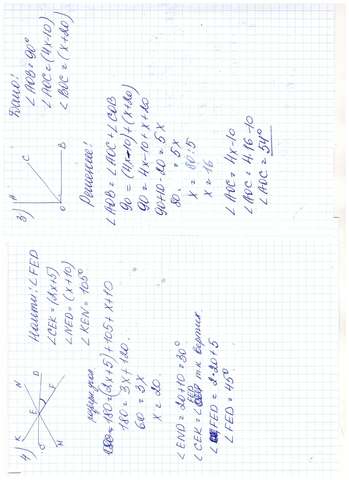 3)
A
C
B
O
Дано:
∠AOB = 90°
∠AOC = (4x-10)
∠BOC = (x+20)
Решение:
∠AOB = ∠AOC + ∠COB
90 = (4x-10)+(x+20)
90 = 4x-10+x+20
90+10-20 = 5x
80 = 5x
x = 80:5
x = 16
∠AOC = 4x-10
∠AOC = 4.16-10
∠AOC = 54°
4)
K
N
D
E
C
M
Найти: ∠FED
∠CEK = (2x+5)
∠NED = (x+10)
∠KEN = 105°
180 = (2x+5)+105+x+10
180 = 3x+120.
60 = 3x
x = 20.
∠END = 20+10 = 30°
∠CEK = ∠FED т.к вертик
∠FED = 2.20+5
∠FED = 45°